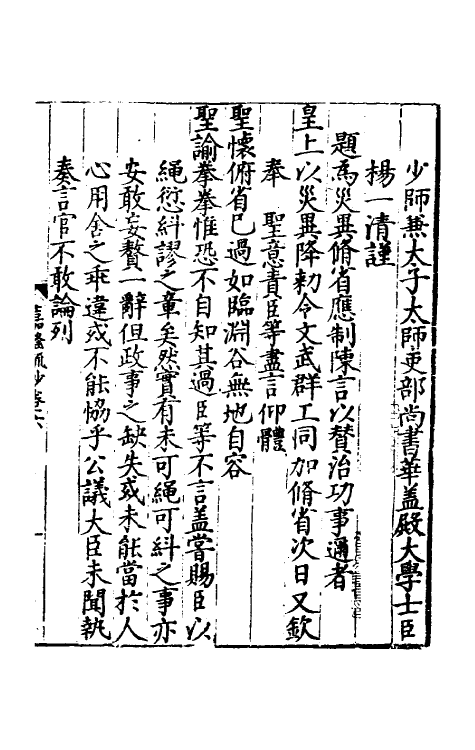 少師兼太子太師吏部尚書華蓋殿大學士臣
楊一清謹
題爲災異脩省應制陳言以賛治功事邇者
皇上以災異降勑令文武群工同加脩省次日又欽
奉　聖意責臣等盡言仰體
聖懷俯省已過如臨淵谷無地自容
聖諭拳拳惟恐不自知其過臣等不言盖嘗賜臣以
繩愆糾謬之章矣然實有未可繩可糾之事亦
安敢妄贅一辭但政事之缺失或未能當於人
心用舍之乖違或不能恊乎公議大臣未聞執
奏言官不敢論列